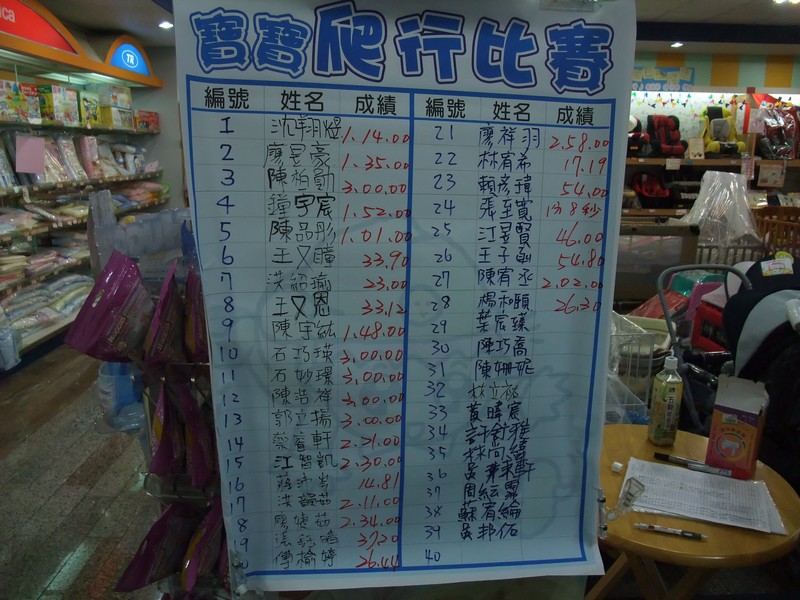 寶寶爬行比賽
編號 姓名 成績 編號 姓名 成績
1 沈翔煜 1.14.00
2 廖昱豪 1.35.00
3 陳柏勳 3.00.00
4 鐘宇宸 1.52.00
5 陳品彤 1.01.00
6 王又瞳 33.90
7 洪紹瑜 23.00
8 王又恩 33.12
9 陳宇紘 1.48.00
10 石巧瑛 3.00.00
11 石妙璟 3.00.00
12 陳浩祥 3.00.00
13 郭立揚 3.00.00
14 蔡睿軒 2.21.00
15 江智凱 2.30.00
16 14.81
17 2.11.00
18 2.34.00
19 37.20
20 傅榆婷 26.44
21 廖祥羽 2.58.00
22 林宥希 17.19
23 賴彦瑋 54.00
24 張至寬 1分8秒
25 江昱賢 46.00
26 王子函 54.80
27 陳宥丞 2.02.00
28 楊和頤 26.30
29 葉宸臻
30 陳巧喬
31 陳姍妮
32 林立祐
33 黃暐宸
34 許舒雅
35
36
37
38 蘇宥綸
39 吳邦佑
40
TR
ica